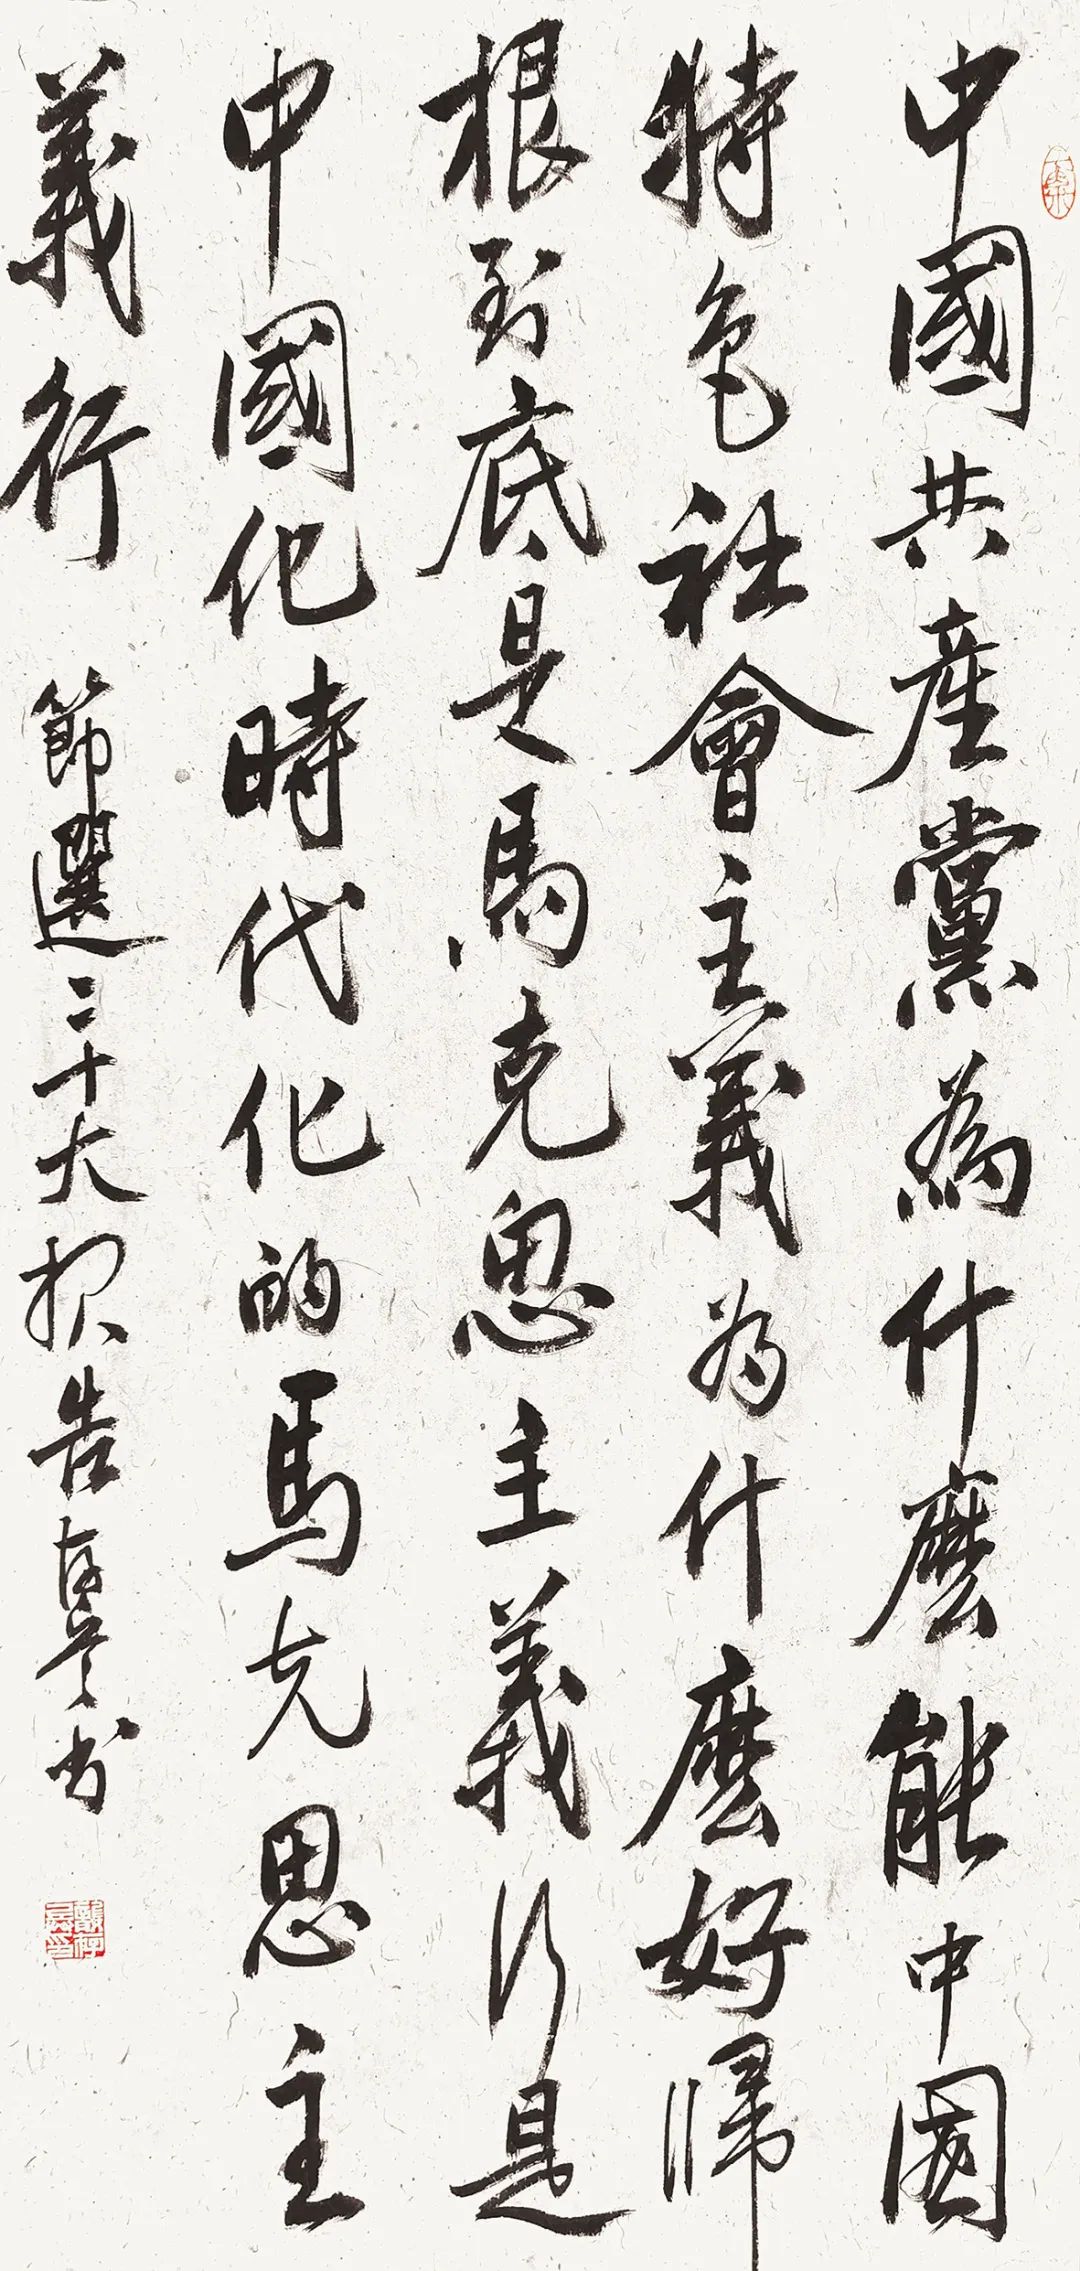 中國共産黨為什麽能中國
特色社會主義为什麽好歸
根到底是馬克思主義行是
中國化時代化的馬克思主
義行 節選二十大报告 书